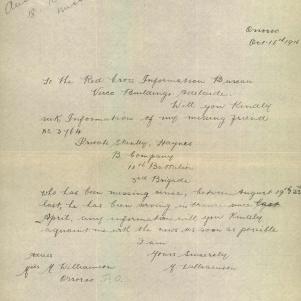 Orroroo
Oct 18th 1916
To the Red Cross Information Bureau
Verco Buildings, Adelaide.
Will you Kindly
seek Information of my missing friend
No 3764
Private Stanley, Haynes
B Company
10th Battalion
3rd Brigade
who has been missing since, between August 19th & 23
last, he has been serving in France since
April, any information will you Kindly
aquaint me with the news as soon as possible
I am
Yours Sincerely
M Williamson
Miss M Williamson
Orroroo